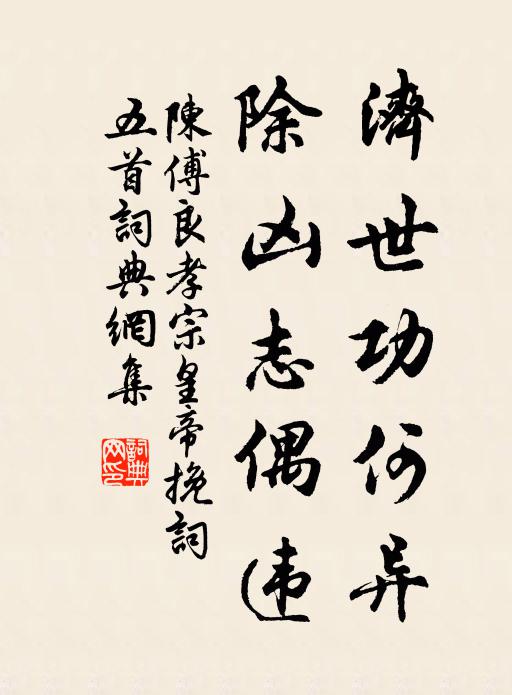 濟世功何异
除凶志偶违
陳傅良孝宗皇帝挽詞
五首詞典網集
詞典网印